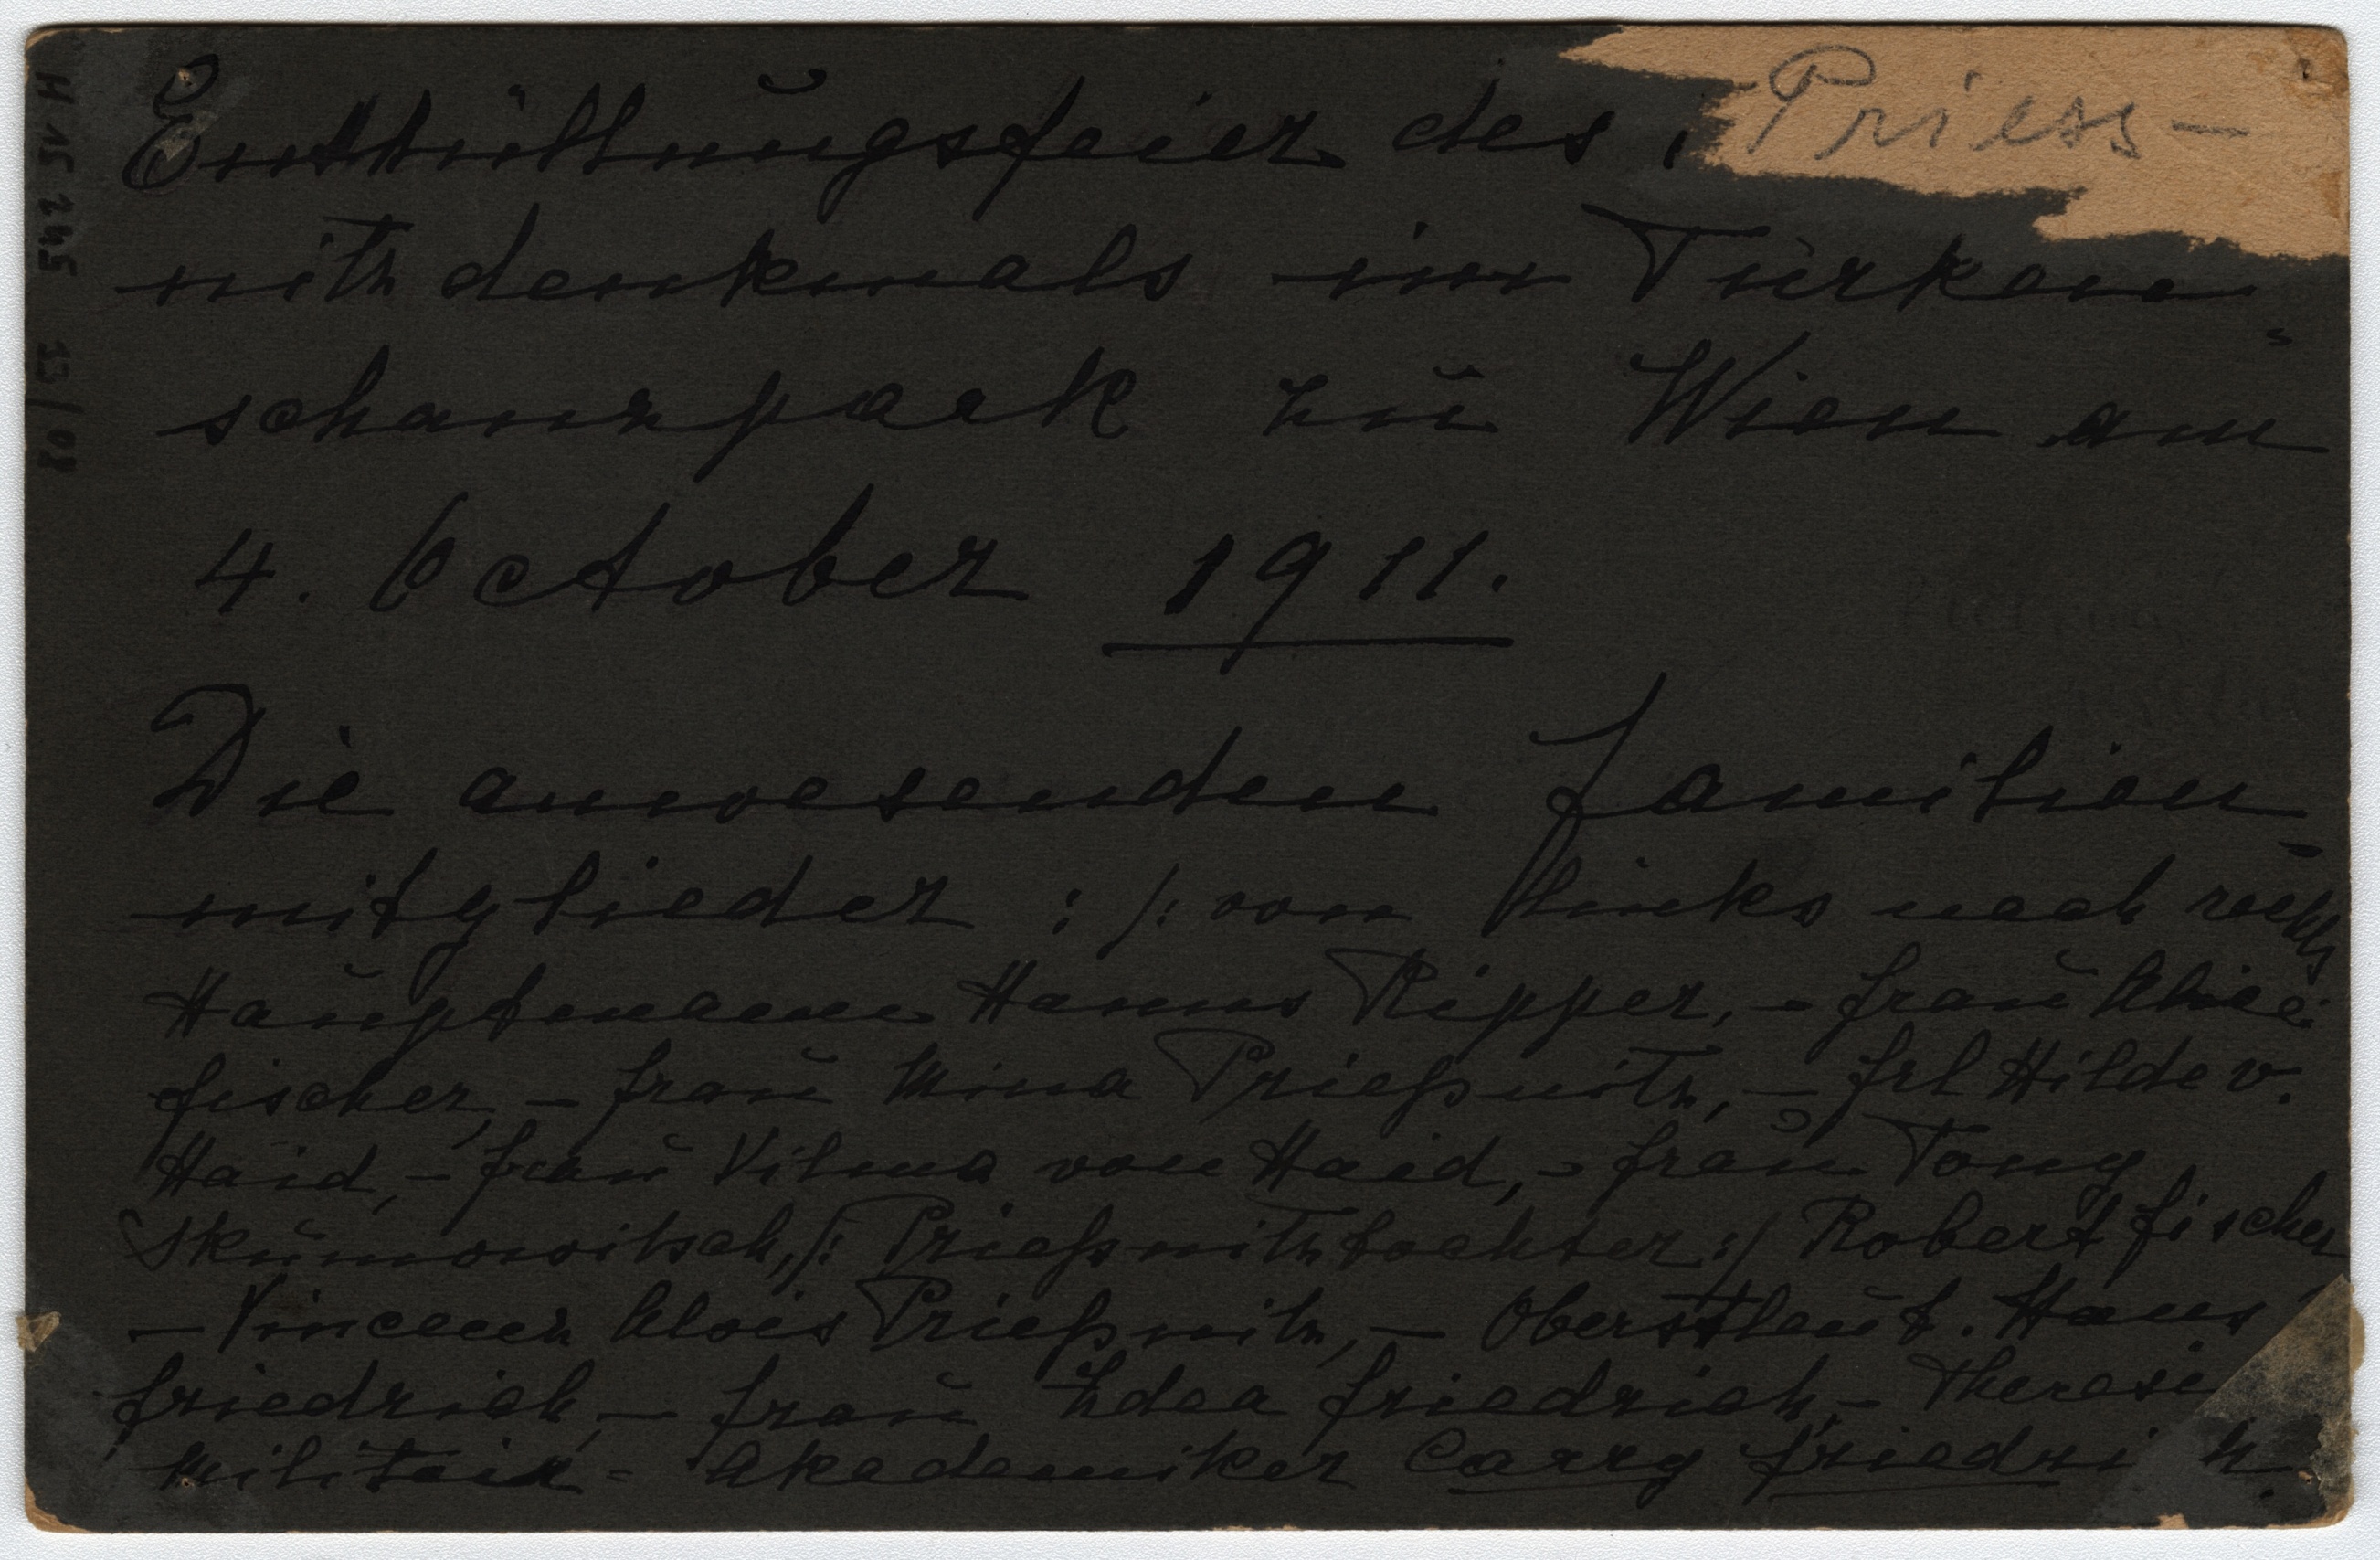 Enthüllungsfeier des Priess-
nitz denkmals im Türken-
schanzpark zu Wien am
4. October 1911.
Die anwesenden Familien-
mitglieder : /: von links nach rechts
Hauptmann Hanns Ripper, - Frau Alice
Fischer, - Frau Mina Prießnitz, - Frl Hilde v.
Haid, - Frau Vilma von Haid, - Frau Tony
Skumowitsch, /: Prießnitztochter :/ Robert Fischer
- Vincenz Alois Prießnitz, - Oberstleut. Hans
Friedrich, - Frau Zdea Friedrich, - Therese
Militair - Akademiker Carry Friedrich.
H 15 245 II/08